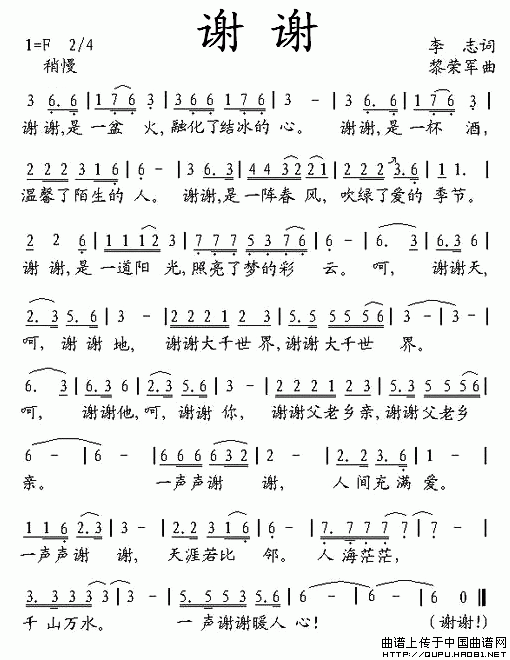 谢 谢
1=F 2/4 李 志词
稍慢 黎荣军曲
3 6. 6 | 1 7 6 3 | 6 6 6 3 1 7 6 | 3 - | 3 6. 6 | 1 7 6 3 |
谢谢,是 一盆 火,融化了结冰的 心。 谢谢,是一杯 酒,
2 2 2 3 1 6 | 6 - | 3 6. 3 | 4 4 3 2 2 1 | 2 2 2 3. 6 | 1 1. |
温馨了陌生的 人。 谢谢,是一阵春 风,吹绿了爱的 季节。
2 2 6 | 1 1 1 2 3 | 7 7 7 5 3 7 6 | 6 - | 6. 3 | 6. 3 6 |
谢 谢,是 一道阳 光,照亮了梦的彩 云。 呵, 谢谢天,
2. 3 5. 6 | 3 - | 2 2 2 1 2 3 | 5 5 5 3 5 6 | 3 - | 3 - |
呵,谢 谢 地, 谢谢大千世 界,谢谢大千世 界。
6. 3 | 6. 3 6 | 2. 3 5. 6 | 3 - | 2 2 2 1 2 3 | 5. 3 5 5 5 6 |
呵, 谢谢他,呵,谢谢 你, 谢谢父老乡亲,谢谢父老乡
6 - | 6 - | 6 6 6 6 3 2 | 3 - | 2. 2 3. 6 | 6 - |
亲。 一声声谢 谢, 人间充满 爱。
1 1 6 2. 3 | 3 - | 2 2 3 1 6 | 6 - | 7. 7 7 7 | 7 7 |
一声声谢 谢, 天涯若比 邻。 人 海茫茫,
3. 3 3 3 3 | 3 - | 5. 5 5 6 3 5 | 6 - | 6 6 | 6 0 ‖
千 山万水。 一声谢谢暖人 心! (谢谢!)
曲谱上传于中国曲谱网
HTTP://QUPU.HAO81.NET